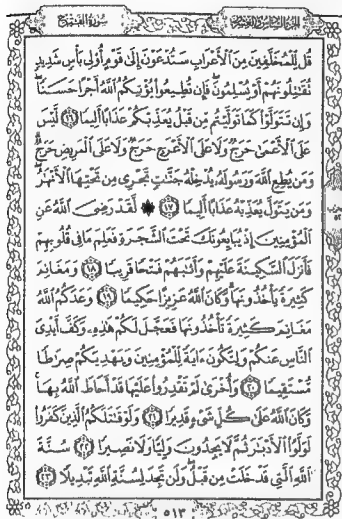 الجزء السادس والعشرون سورة الفتح
قُل لِّلْمُخَلَّفِينَ مِنَ الْأَعْرَابِ سَتُدْعَوْنَ إِلَىٰ قَوْمٍ أُولِي بَأْسٍ شَدِيدٍ
تُقَاتِلُونَهُمْ أَوْ يُسْلِمُونَ ۖ فَإِن تُطِيعُوا يُؤْتِكُمُ اللَّهُ أَجْرًا حَسَنًا ۖ
وَإِن تَتَوَلَّوْا كَمَا تَوَلَّيْتُم مِّن قَبْلُ يُعَذِّبْكُمْ عَذَابًا أَلِيمًا ﴿١٦﴾ لَّيْسَ
عَلَى الْأَعْمَىٰ حَرَجٌ وَلَا عَلَى الْأَعْرَجِ حَرَجٌ وَلَا عَلَى الْمَرِيضِ حَرَجٌ ۗ
وَمَن يُطِعِ اللَّهَ وَرَسُولَهُ يُدْخِلْهُ جَنَّاتٍ تَجْرِي مِن تَحْتِهَا الْأَنْهَارُ ۖ
وَمَن يَتَوَلَّ يُعَذِّبْهُ عَذَابًا أَلِيمًا ﴿١٧﴾ ۞ لَّقَدْ رَضِيَ اللَّهُ عَنِ
الْمُؤْمِنِينَ إِذْ يُبَايِعُونَكَ تَحْتَ الشَّجَرَةِ فَعَلِمَ مَا فِي قُلُوبِهِمْ
فَأَنزَلَ السَّكِينَةَ عَلَيْهِمْ وَأَثَابَهُمْ فَتْحًا قَرِيبًا ﴿١٨﴾ وَمَغَانِمَ
كَثِيرَةً يَأْخُذُونَهَا ۗ وَكَانَ اللَّهُ عَزِيزًا حَكِيمًا ﴿١٩﴾ وَعَدَكُمُ اللَّهُ
مَغَانِمَ كَثِيرَةً تَأْخُذُونَهَا فَعَجَّلَ لَكُمْ هَٰذِهِ وَكَفَّ أَيْدِيَ
النَّاسِ عَنكُمْ وَلِتَكُونَ آيَةً لِّلْمُؤْمِنِينَ وَيَهْدِيَكُمْ صِرَاطًا
مُّسْتَقِيمًا ﴿٢٠﴾ وَأُخْرَىٰ لَمْ تَقْدِرُوا عَلَيْهَا قَدْ أَحَاطَ اللَّهُ بِهَا ۚ
وَكَانَ اللَّهُ عَلَىٰ كُلِّ شَيْءٍ قَدِيرًا ﴿٢١﴾ وَلَوْ قَاتَلَكُمُ الَّذِينَ كَفَرُوا
لَوَلَّوُا الْأَدْبَارَ ثُمَّ لَا يَجِدُونَ وَلِيًّا وَلَا نَصِيرًا ﴿٢٢﴾ سُنَّةَ
اللَّهِ الَّتِي قَدْ خَلَتْ مِن قَبْلُ ۖ وَلَن تَجِدَ لِسُنَّةِ اللَّهِ تَبْدِيلًا ﴿٢٣﴾
٥١٣